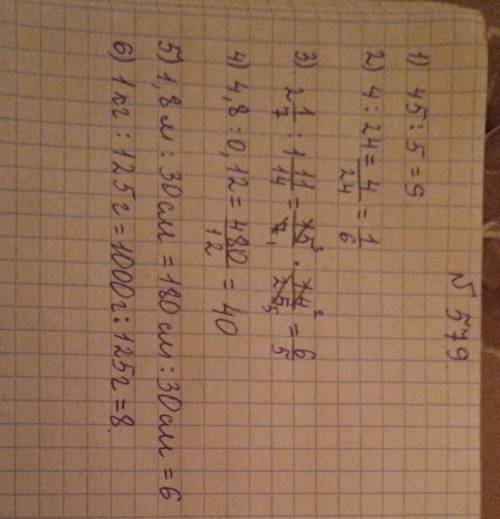 № 579
1) 45 : 5 = 9.
2) 4 : 24 = 4/24 = 1/6
3) 2 1/7 : 1 11/14 = 15³/7₁ · 14²/25₅ = 6/5
4) 4,8 : 0,12 = 480/12 = 40
5) 1,8 м : 30 см = 180 см : 30 см = 6
6) 1 кг : 125 г = 1000 г : 125 г = 8.